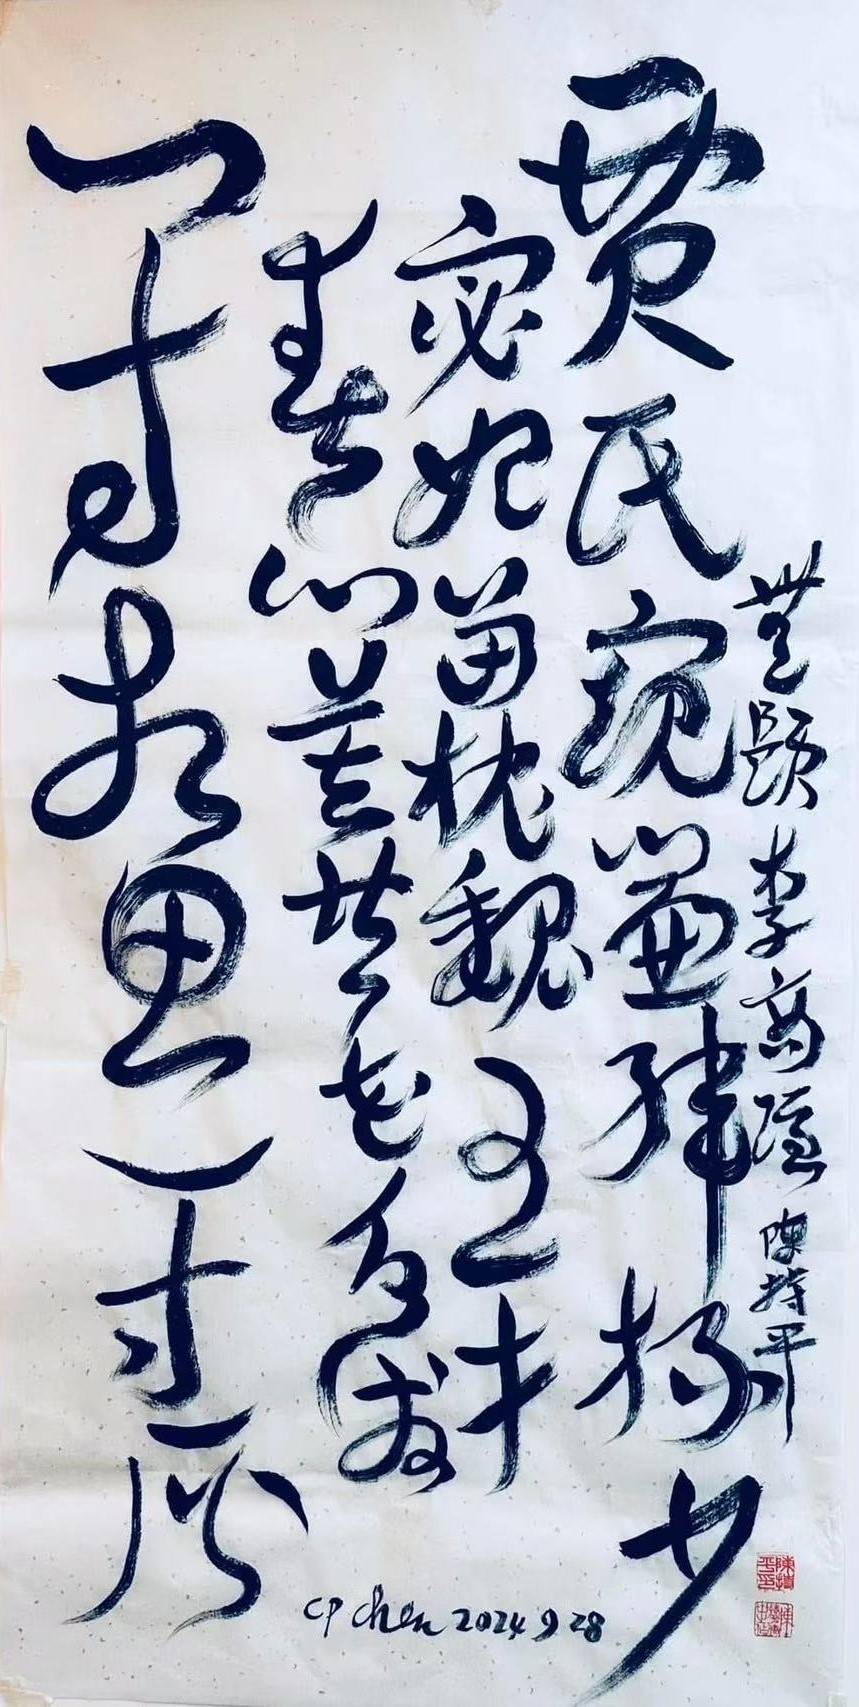 無題 李商隱 陳持平
賈氏窺簾韓掾少
宓妃留枕魏王才
春心莫共花爭發
一寸相思一寸灰
CP Chen 2024 9 28